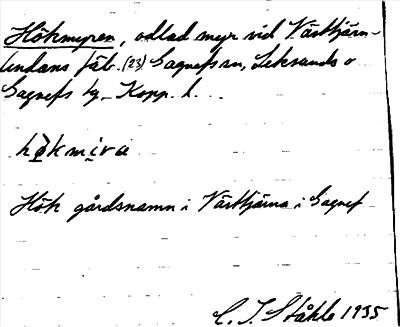 Hökmyren, odlad myr vid Västtjärn-
lindans fäb. (23) Gagnefs sn, Leksands o
Gagnefs tg, Kopp. l.
høkmira
Hök gårdsnamn i Västtjärna i Gagnef
C. I. Ståhle 1935